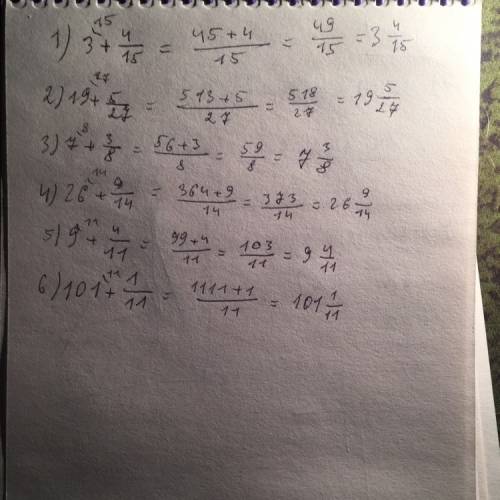 1) 3 ^15 + 4/15 = (45+4)/15 = 49/15 = 3 4/15
2) 19 ^27 + 5/27 = (513+5)/27 = 518/27 = 19 5/27
3) 7 ^8 + 3/8 = (56+3)/8 = 59/8 = 7 3/8
4) 26 ^14 + 9/14 = (364+9)/14 = 373/14 = 26 9/14
5) 9 ^11 + 4/11 = (99+4)/11 = 103/11 = 9 4/11
6) 101 ^11 + 1/11 = (1111+1)/11 = 101 1/11